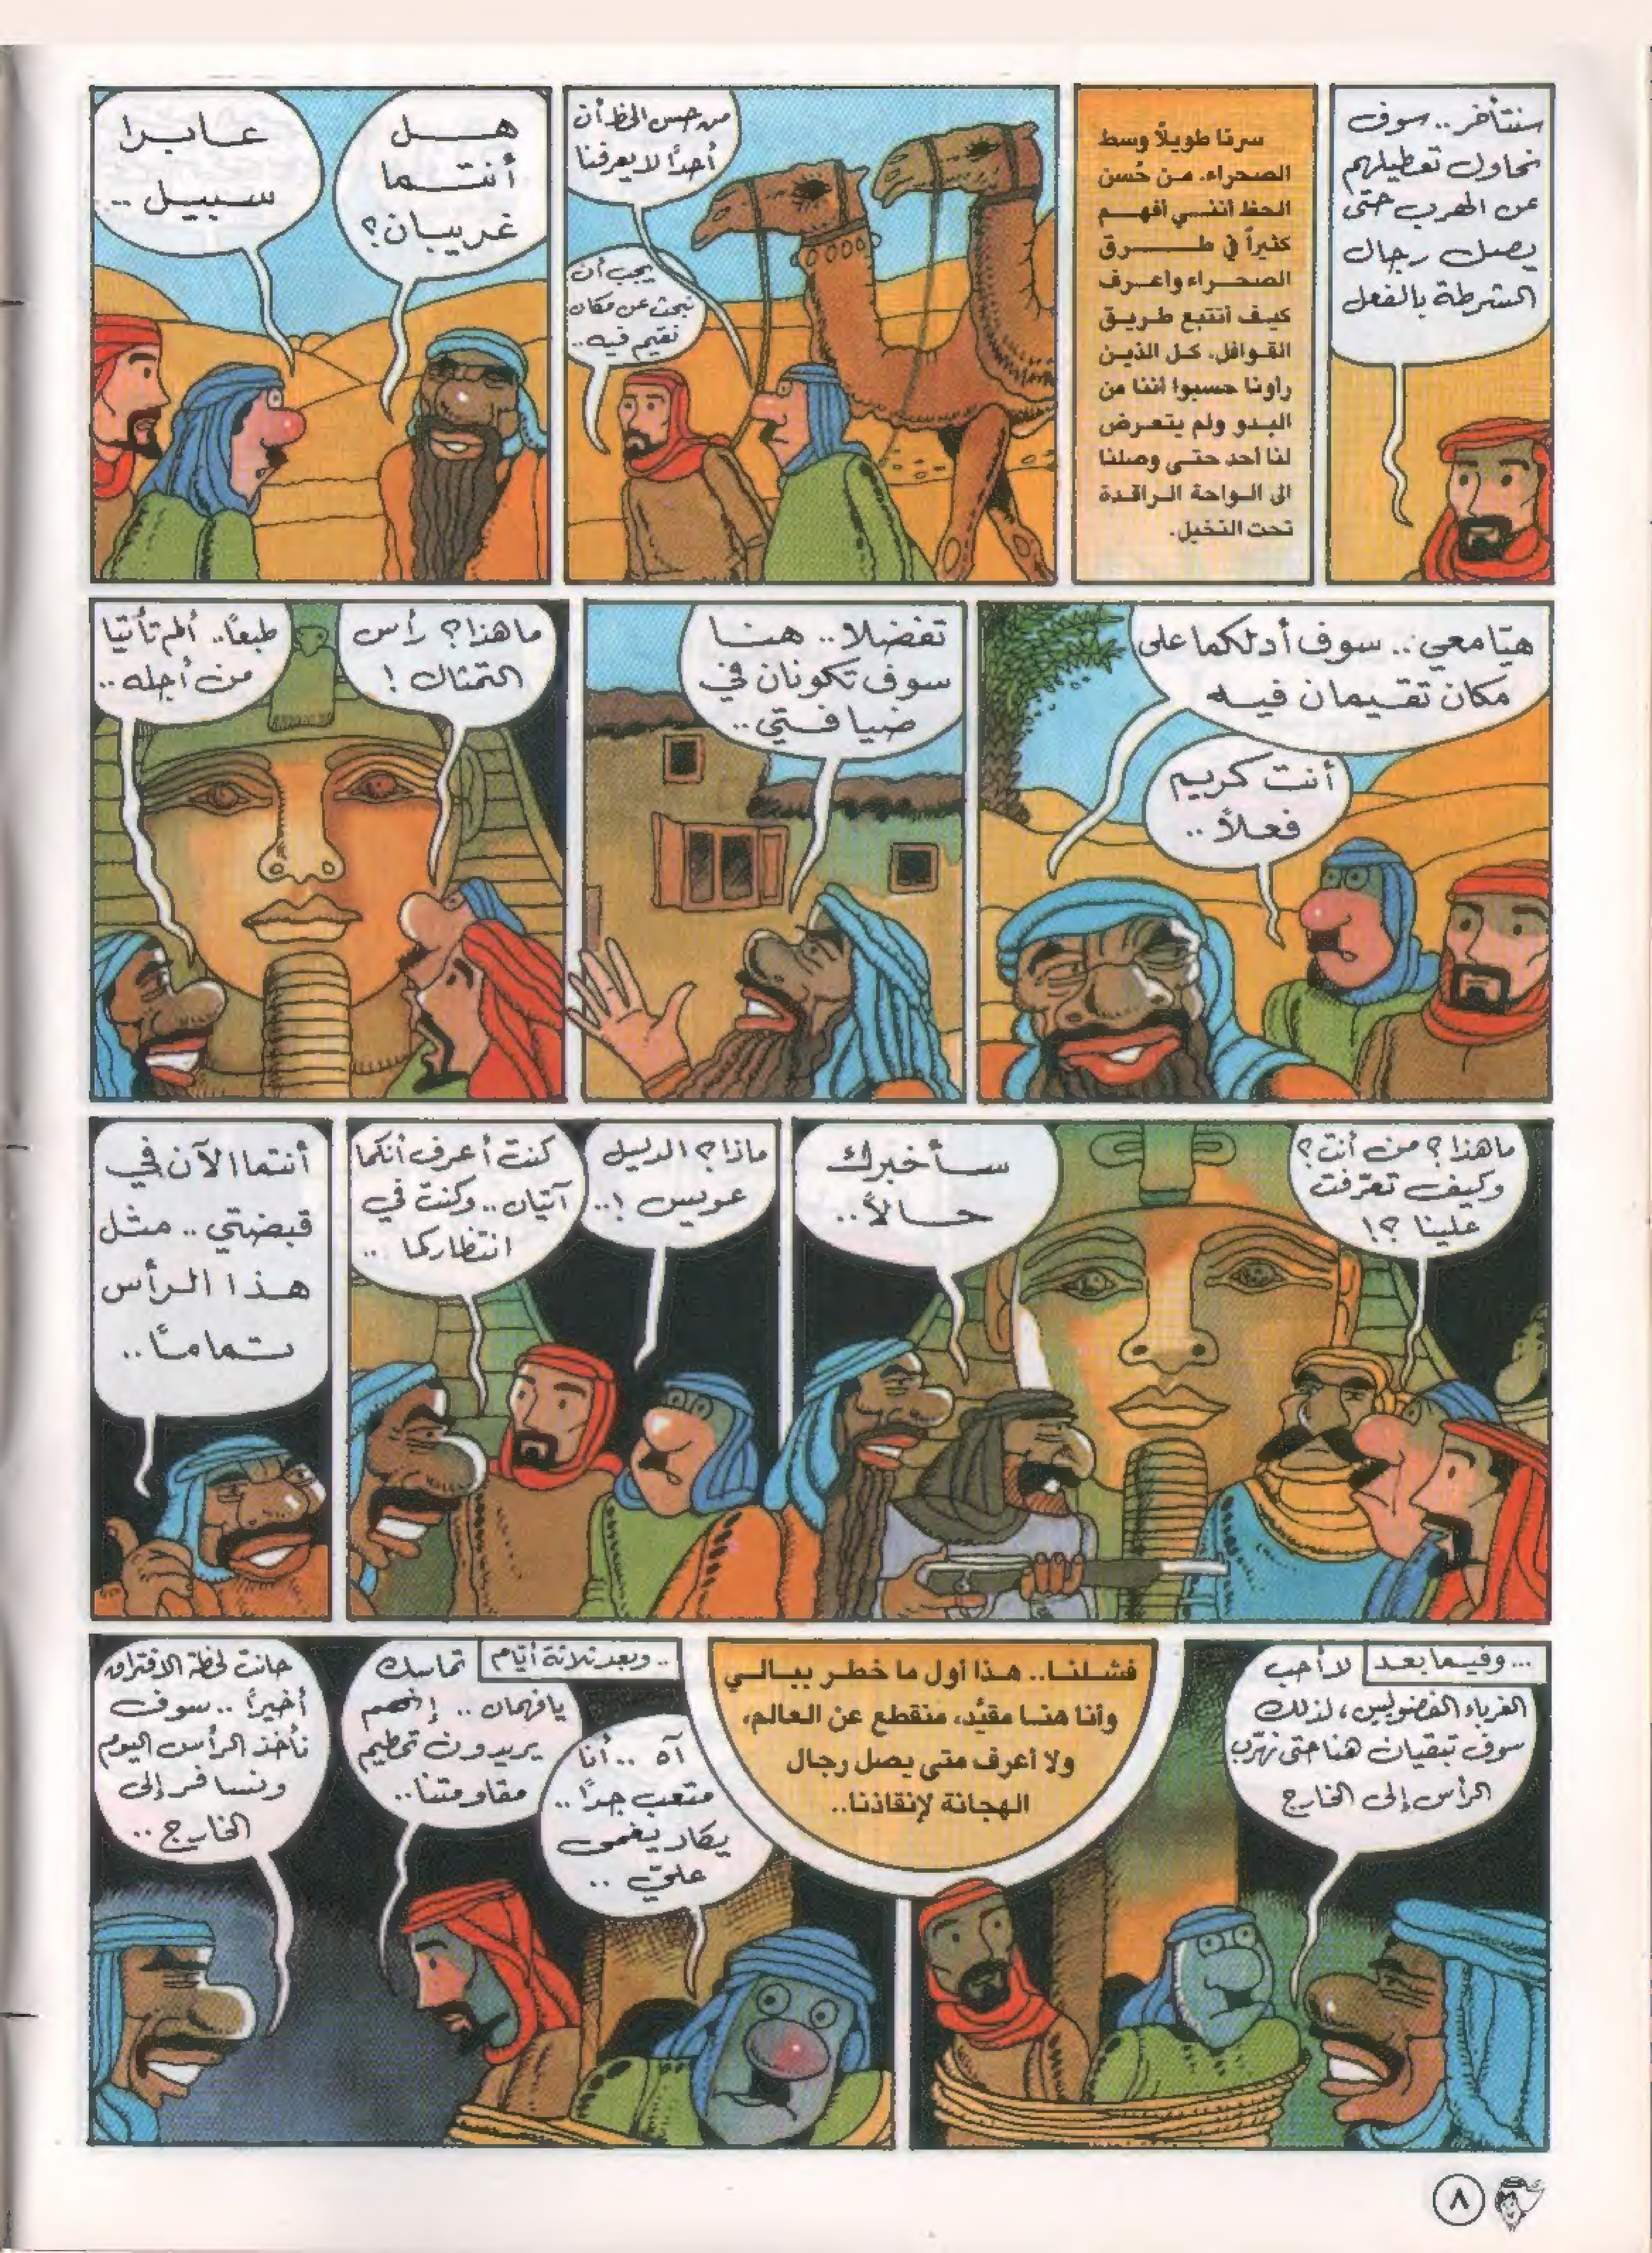 سنتأخر.. سوف
نحاول تعطيلهم
عن الهرب حتى
يصل رجال
الشرطة بالفعل
سرنا طويلاً وسط
الصحراء. من حُسن
الحظ أنني أفهم
كثيراً في طرق
الصحراء وأعرف
كيف أتتبع طريق
القوافل. كل الذين
رأونا حسبوا أننا من
البدو ولم يتعرض
لنا أحد حتى وصلنا
الى الواحة الراقدة
تحت النخيل.
من حسن الحظ أن
أحدًا لا يعرفنا
يجب أن
نبحث عن مكان
نقيم فيه..
هل
أنتما
غريبان؟
عابرا
سبيل..
هيّا معي.. سوف أدلكما على
مكان تقيمان فيه
أنت كريم
فعلاً..
تفضلا.. هنا
سوف تكونان في
ضيافتي..
ما هذا؟ رأس
التمثال!
طبعًا.. ألم تأتيا
من أجله..
ما هذا؟ من أنت؟
وكيف تعرّفت
علينا؟!
سأخبرك
حالاً..
ماذا؟ الدليل
عويس!..
كنت أعرف أنكما
آتيان.. وكنت في
انتظاركما..
أنتما الآن في
قبضتي.. مثل
هذا الرأس
تمامًا..
...وفيما بعد
لا أحب
الغرباء الفضوليين، لذلك
سوف تبقيان هنا حتى نهرّب
الرأس إلى الخارج
فشلنا.. هذا أول ما خطر ببالي
وأنا هنا مقيّد، منقطع عن العالم،
ولا أعرف متى يصل رجال
الهجانة لإنقاذنا..
..وبعد ثلاثة أيام
تماسك
يا فهمان.. إنهم
يريدون تحطيم
مقاومتنا..
آه.. أنا
متعب جدًا..
يكاد يغمى
عليّ..
حانت لحظة الافتراق
أخيرًا.. سوف
نأخذ الرأس اليوم
ونسافر إلى
الخارج..
٨